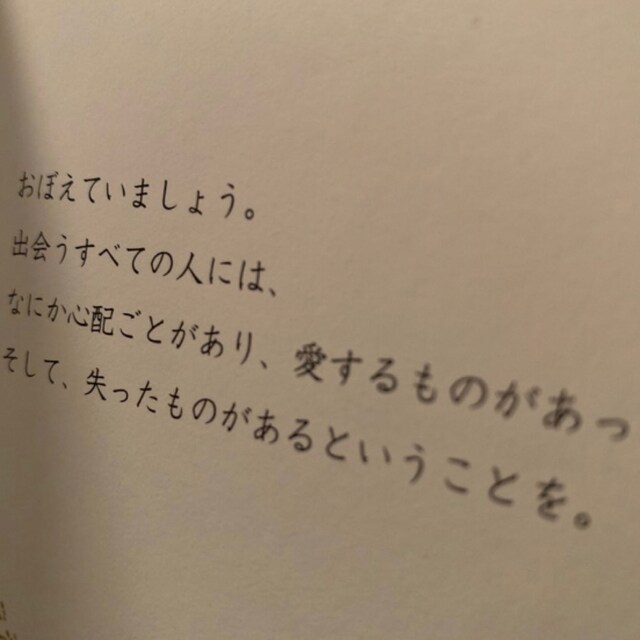 おぼえていましょう。
出会うすべての人には、
なにか心配ごとがあり、愛するものがあっ
そして、失ったものがあるということを。